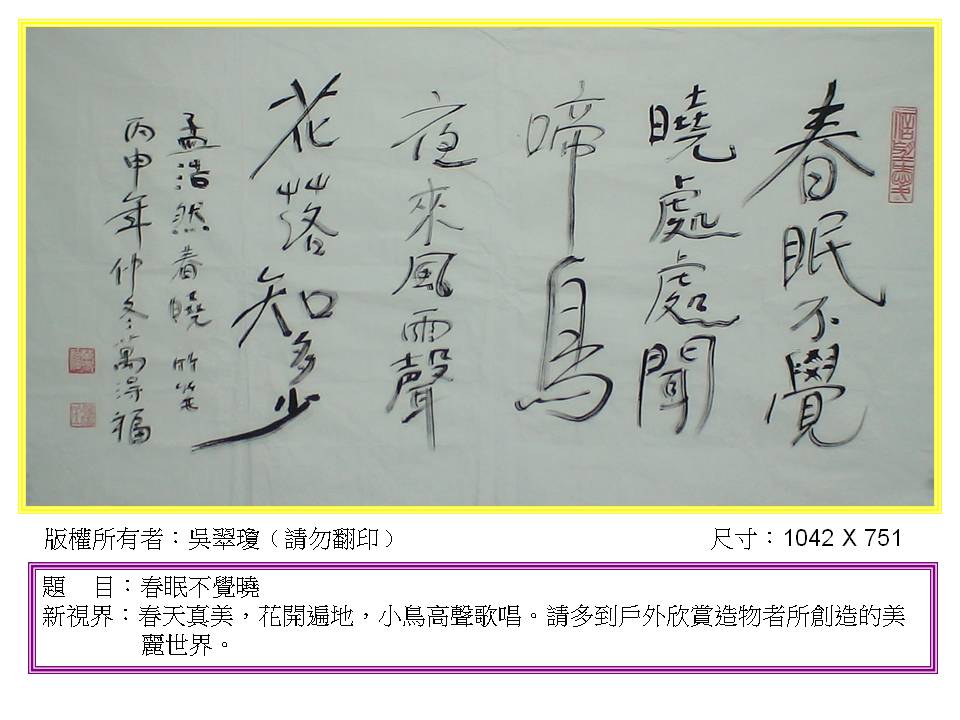 春眠不覺
曉處處聞
啼鳥
夜來風雨聲
花落知多少
孟浩然春曉 竹筆
丙申年仲冬萬得福
版權所有者：吳翠瓊（請勿翻印）
尺寸：1042 X 751
題　目：春眠不覺曉
新視界：春天真美，花開遍地，小鳥高聲歌唱。請多到戶外欣賞造物者所創造的美
麗世界。